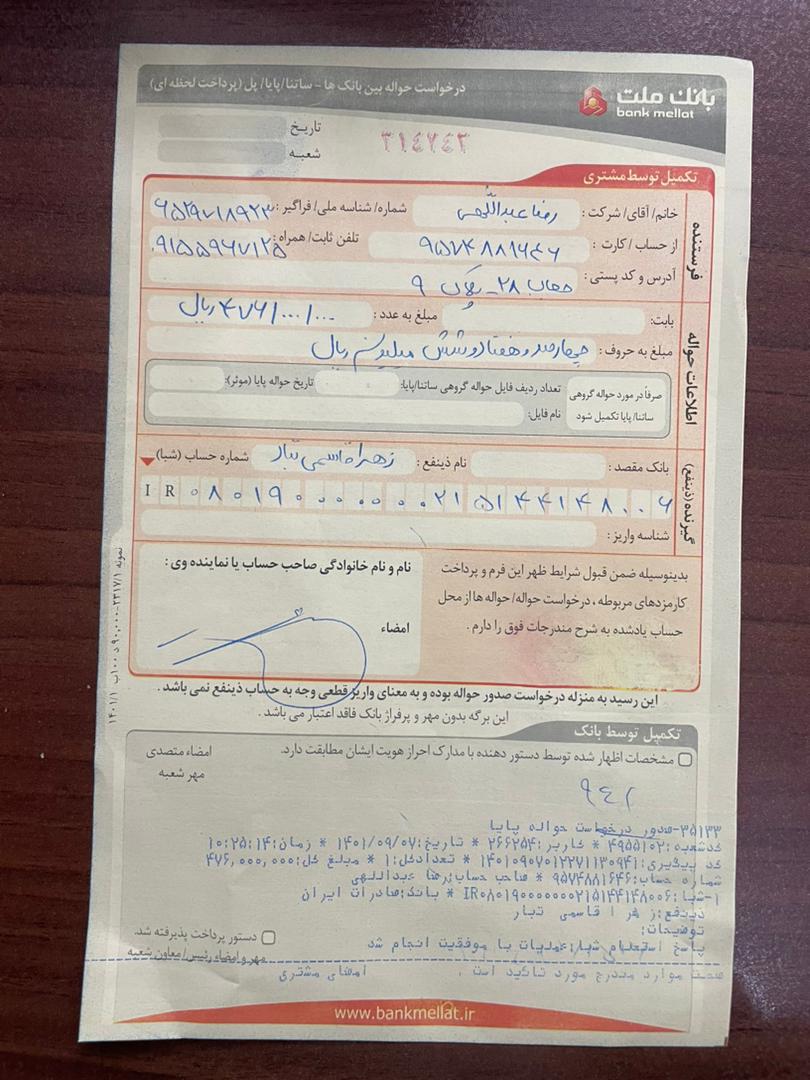 بانک ملت
bank mellat
درخواست حواله بین بانک ها - ساتنا/پایا/ پل (پرداخت لحظه ای)
۳۱۴۷۴۲
تاریخ
شعبه
تکمیل توسط مشتری
فرستنده
خانم/ آقای/ شرکت : رضا عبداللهی شماره/ شناسه ملی/ فراگیر : ۶۵۲۹۷۱۸۹۲۳
از حساب/ کارت : ۹۵۷۴۸۸۱۶۴۶ تلفن ثابت/ همراه : ۰۹۱۵۵۹۶۷۱۲۵
آدرس و کد پستی : ۲۸ - پلاک ۹
اطلاعات حواله
بابت: مبلغ به عدد : ۴۷۶/۰۰۰/۰۰۰ ریال
مبلغ به حروف : چهارصد و هفتاد و شش میلیون ریال
صرفاً در مورد حواله گروهی ساتنا/ پایا تکمیل شود
تعداد ردیف فایل حواله گروهی ساتنا/پایا: تاریخ حواله پایا (موثر):
نام فایل:
گیرنده (ذینفع)
بانک مقصد : نام ذینفع : زهرا قاسمی تبار شماره حساب (شبا)
IR ۰۸۰۱۹۰۰۰۰۰۰۰۰۲۱۵۱۴۴۱۴۸۰۰۶
شناسه واریز :
بدینوسیله ضمن قبول شرایط ظهر این فرم و پرداخت
کارمزدهای مربوطه ، درخواست حواله/ حواله ها از محل
حساب یادشده به شرح مندرجات فوق را دارم .
نام و نام خانوادگی صاحب حساب یا نماینده وی :
امضاء
این رسید به منزله درخواست صدور حواله بوده و به معنای واریز قطعی وجه به حساب ذینفع نمی باشد .
این برگه بدون مهر و پرفراژ بانک فاقد اعتبار می باشد .
تکمیل توسط بانک
مشخصات اظهار شده توسط دستور دهنده با مدارک احراز هویت ایشان مطابقت دارد.
امضاء متصدی
مهر شعبه
۳۵۱۳۳-صدور درخواست حواله پایا
کدشعبه:۴۹۵۵۱۰۲ * کاربر:۲۶۶۲۵۴ * تاریخ:۱۴۰۱/۰۹/۰۷ * زمان:۱۰:۲۵:۱۴
کد پیگیری:۱۴۰۱۰۹۰۷۰۱۲۲۷۱۱۳۰۹۴۱ * تعدادکل:۱ * مبلغ کل:۴۷۶,۰۰۰,۰۰۰
شماره حساب:۹۵۷۴۸۸۱۶۴۶ * صاحب حساب:رضا عبداللهی
۱-شبا:IR۰۸۰۱۹۰۰۰۰۰۰۰۰۲۱۵۱۴۴۱۴۸۰۰۶ * بانک:صادرات ایران
ذینفع:زهرا قاسمی تبار
توضیحات:
پاسخ استعلام شبا:عملیات با موفقیت انجام شد
صحت موارد مندرج مورد تاکید است . امضای مشتری
دستور پرداخت پذیرفته شد.
مهر و امضاء رئیس/ معاون شعبه
www.bankmellat.ir